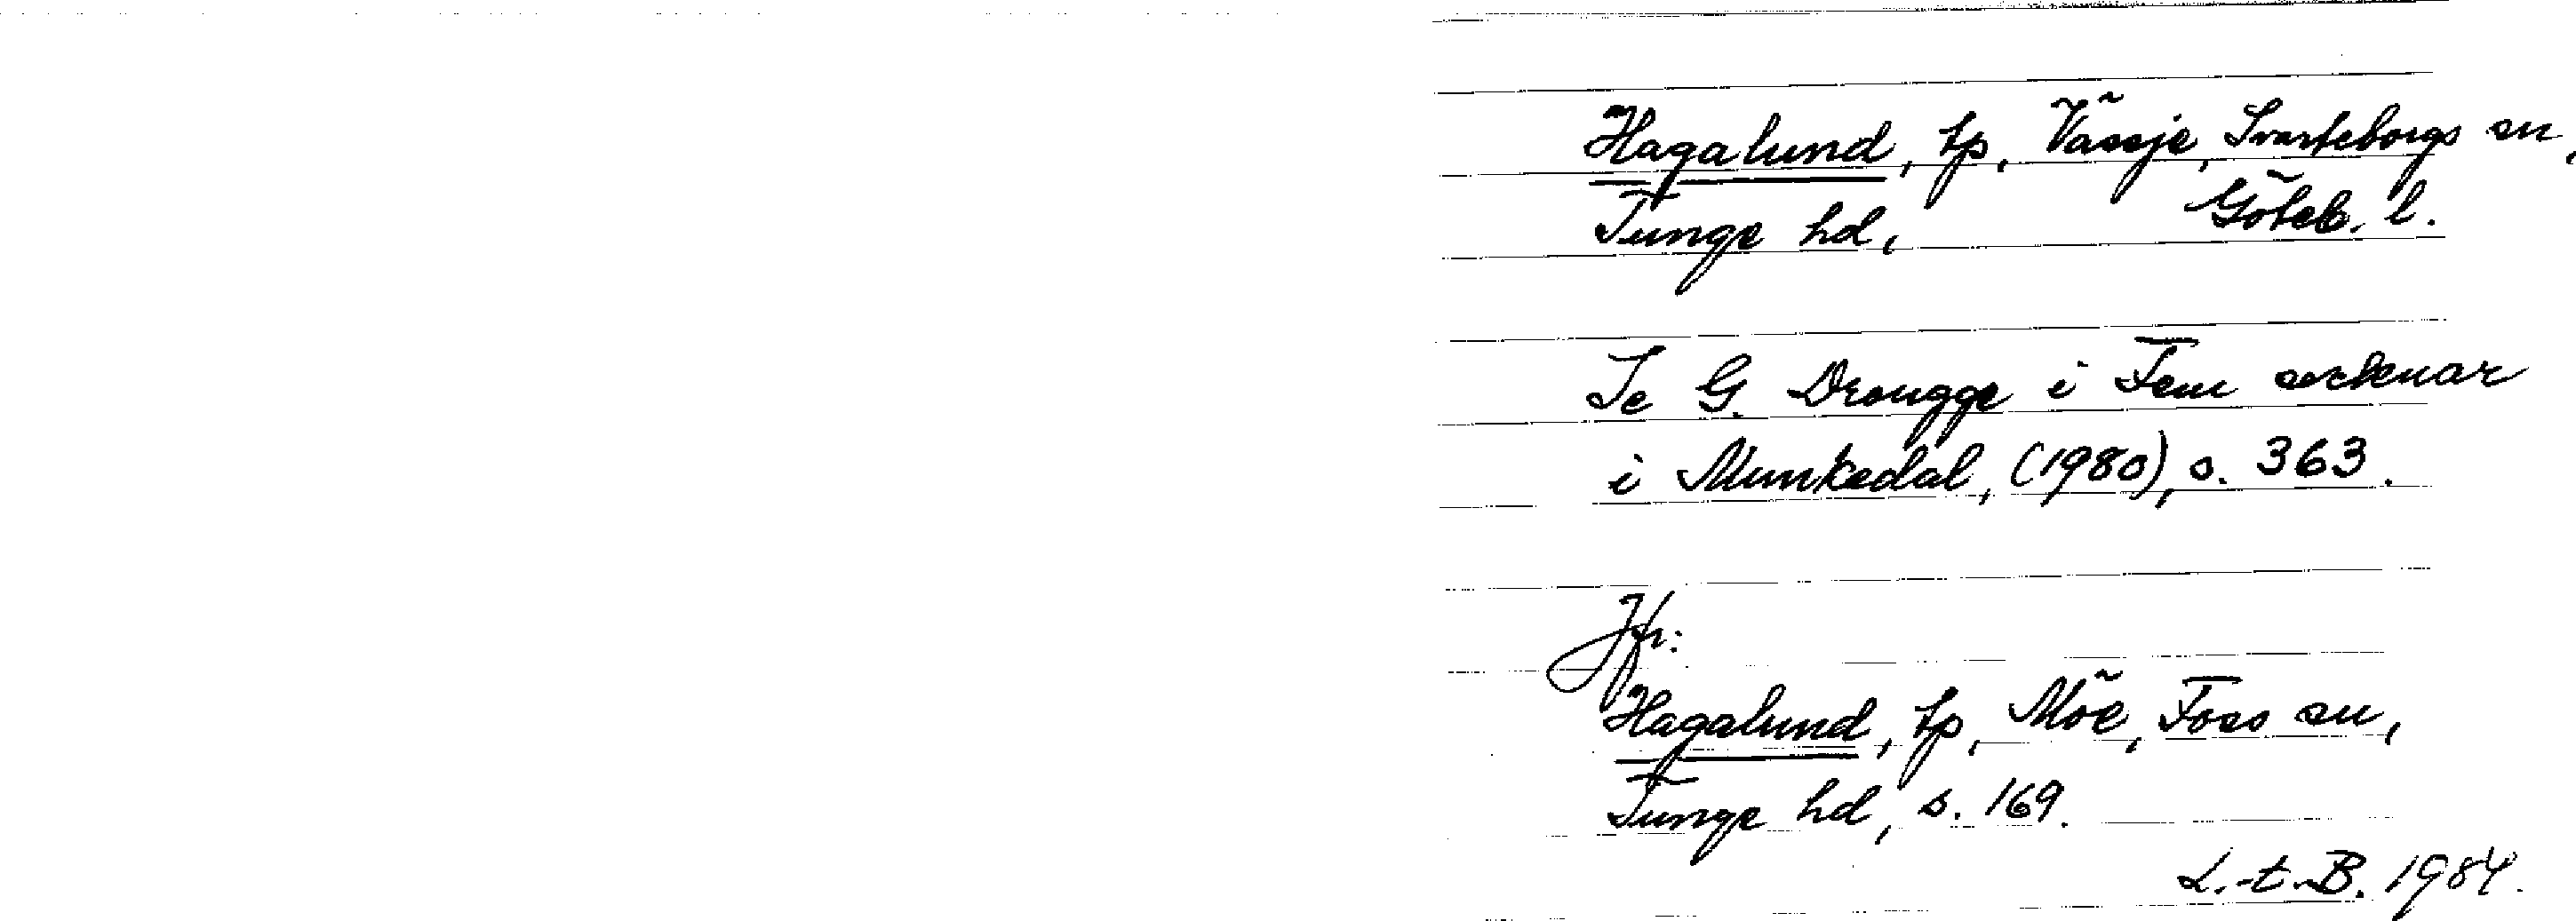 Hagalund, tp, Vässje, Svarteborgs sn,
Tunge hd, Göteb. l.
Se G. Drougge i Fem socknar
i Munkedal, (1980), s. 363.
Jfr:
Hagalund, tp, Möe, Foss sn,
Tunge hd, s. 169.
L.-t.-B. 1984.